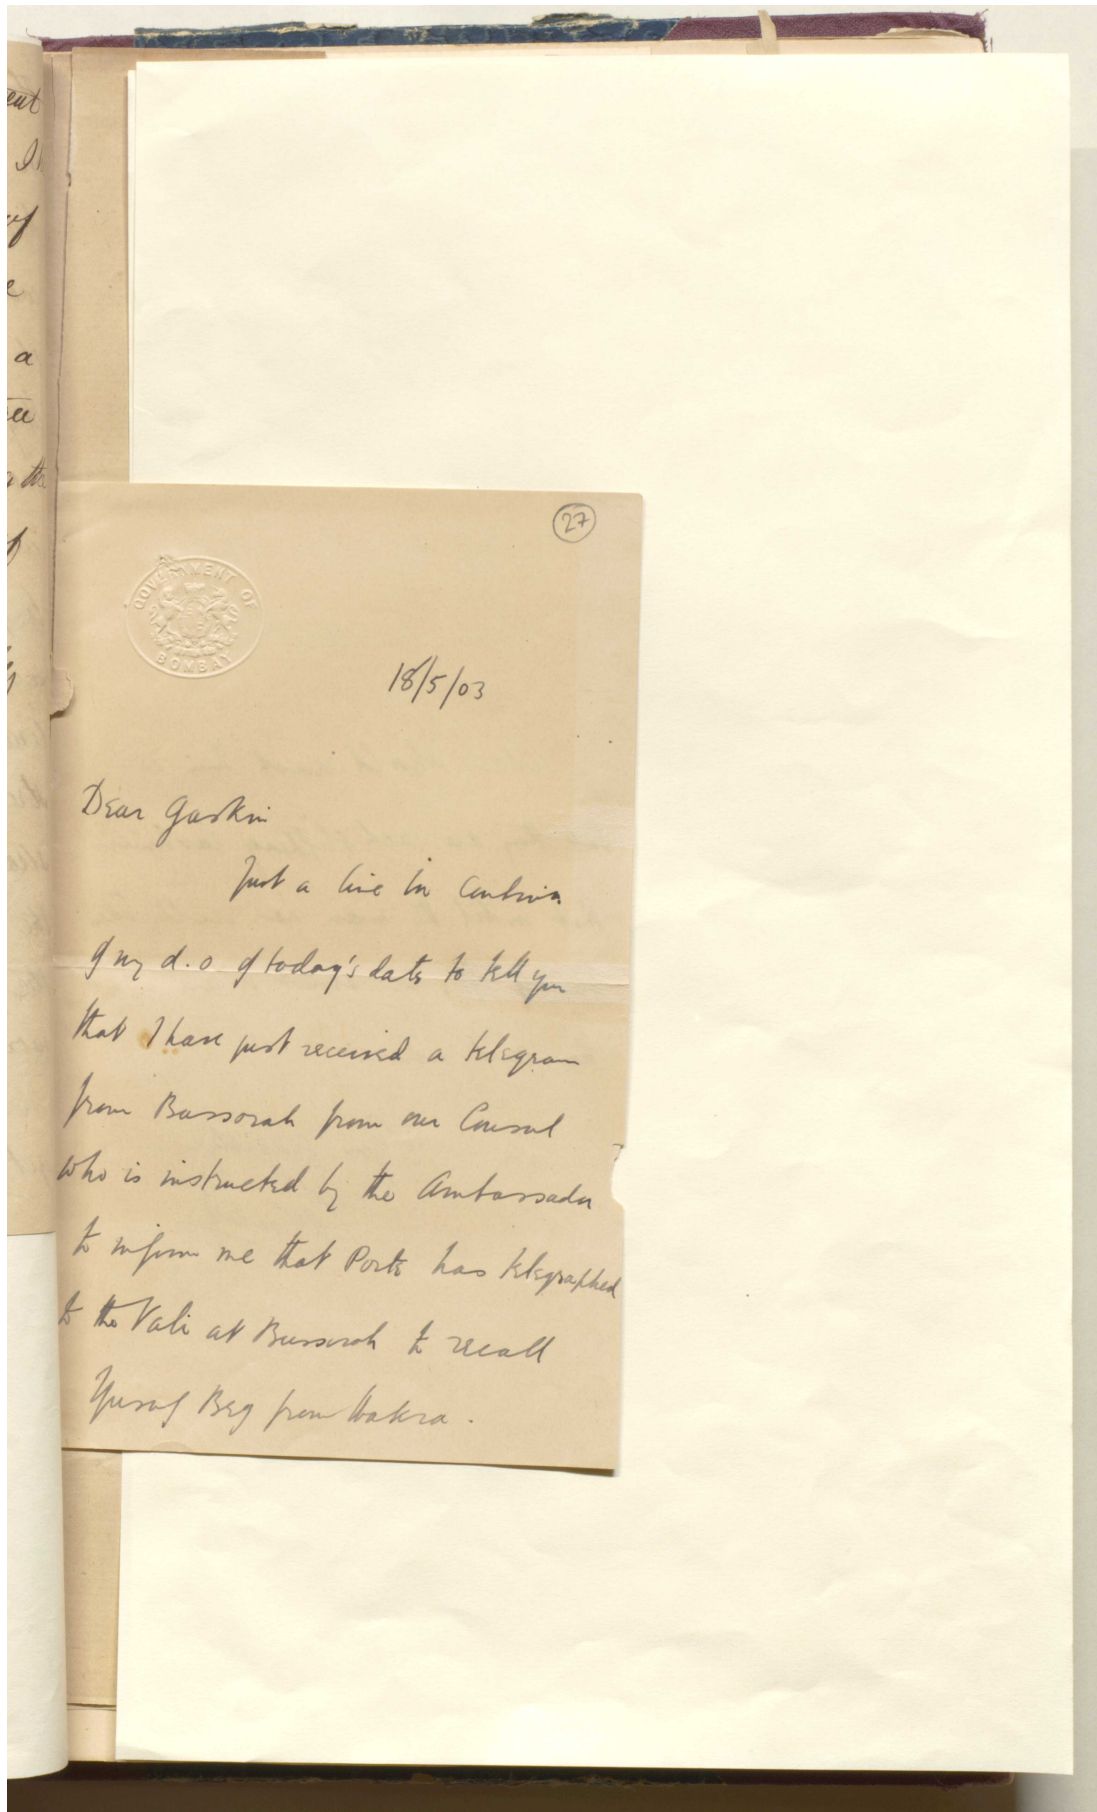 27
GOVERNMENT OF
BOMBAY
18/5/03
Dear Gaskin
Just a line in continn
of my d.o of today's date to tell you
that I have just received a telegram
from Bussorah from our Consul
who is instructed by the Ambassador
to inform me that Porte has telegraphed
to the Vali at Bussorah to recall
Yusuf Beg from Wakra.
ent
I
of
e
a
the